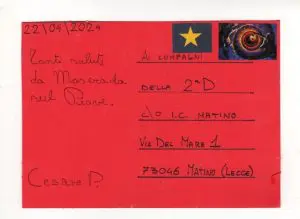 22/04/2024
Tanti saluti
da Maserada
sul Piave.
Cesare P.
Ai compagni
della 2ªD
c/o I.C. Matino
Via Del Mare 1
73046 Matino (Lecce)